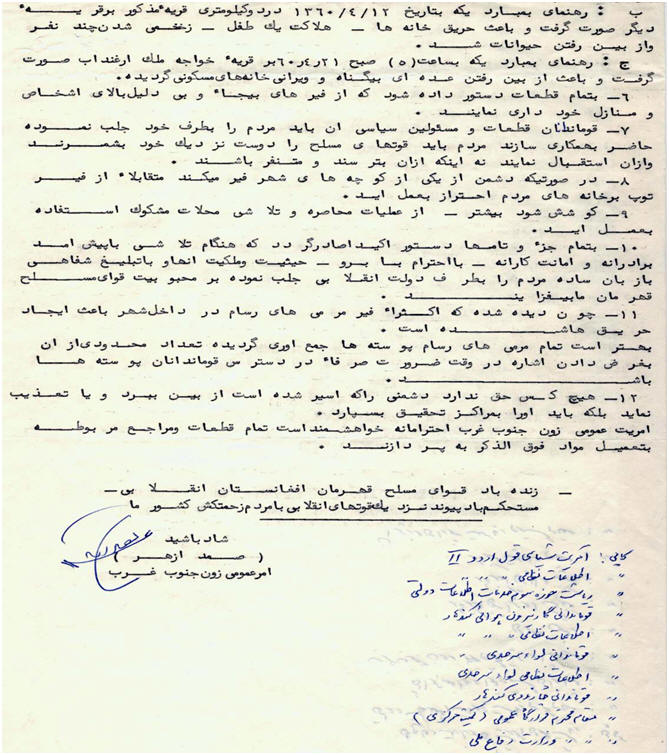 ب : رهنمای بمبارد یکه بتاریخ ۱۳۶۰/۴/۱۲ در دوکیلومتری قریهٔ مذکور برقریهٔ
دیگر صورت گرفت و باعث حریق خانه ها ــ هلاکت یك طفل ــ زخمی شدن چند نفر
واز بین رفتن حیوانات شد .
ج : رهنمای بمبارد یکه بساعت (۵) صبح ۲۱ر۴ر۶۰ بر قریهٔ خواجه ملك ارغنداب صورت
گرفت و باعث از بین رفتن عده ای بیگناه و ویرانی خانه های مسکونی گردیده .
۶ــ بتمام قطعات دستور داده شود که از فیر های بیجا ٔ و بی دلیل بالای اشخاص
و منازل خود داری نمایند .
۷ــ قوماندانان قطعات و مسئولین سیاسی آن باید مردم را بطرف خود جلب نموده
حاضر بهمکاری سازند مردم باید قوتهای مسلح را دوست نز دیك خود بشمرند
وازان استقبال نمایند نه اینکه ازان بتر سند و متنفر باشند .
۸ــ در صورتیکه دشمن از یکی از کو چه های شهر فیر میکند متقابلا ٔ از فیر
توپ برخانه های مردم احتراز بعمل اید .
۹ــ کو شش شود بیشتر ــ از عملیات محاصره و تلا شی محلات مشکوك استفاده
بعمل اید .
۱۰ــ بتمام جز ٔ و تامها دستور اکید اصادرگر دد که هنگام تلا شی باپیش امد
برادرانه و امانت کارانه ــ بااحترام بنا برو ــ حیثیت وملکیت انهاو باتبلیغ شفاهی
باز بان ساده مردم را بطر ف دولت انقلا بی جلب نموده بر محبو بیت قوای مسلح
قهر مان مابیفزا یند .
۱۱ــ چو ن دیده شده که اکثرا ٔ فیر مر می های رسام در داخل شهر باعث ایجاد
حر یق هاشده است .
بهتر است تمام مرمی های رسام پو سته ها جمع اوری گردیده تعداد محدودی از ان
بغر ض دادن اشاره در وقت ضرور ت صر فا ٔ در دستر س قوماندانان پو سته ها
باشد .
۱۲ــ هیچ کس حق ندارد دشمنی راکه اسیر شده است از بین ببرد و یا تعذیب
نماید بلکه باید اورا بمراکز تحقیق بسپارد .
امریت عمومی زون جنوب غرب احترامانه خواهشمند است تمام قطعات ومراجع مر بوطه
بتعمیل مواد فوق الذکر به پر دازند .
ــ زنده باد قوای مسلح قهرمان افغانستان انقلا بی ــ
مستحکم باد پیوند نزد یك قوتهای انقلا بی بامردم زحمتکش کشور ما
شاد باشید
( صمد ازهر )
امرعمومی زون جنوب غرب
کاپی : آمریت سیاسی قول اردو II
〃 اطلاعات نظامی 〃 〃 〃
〃 ریاست حوزه سوم خدمات اطلاعات دولتی
〃 قوماندانی گارنیزون هوائی کندهار
〃 اطلاعات نظامی 〃 〃 〃
〃 قوماندانی لواء سرحدی
〃 اطلاعات نظامی لواء سرحدی
〃 قوماندانی څارندوی کندهار
〃 مقام محترم قرارگاه عمومی ( کمیته مرکزی )
〃 〃 〃 وزارت دفاع ملی